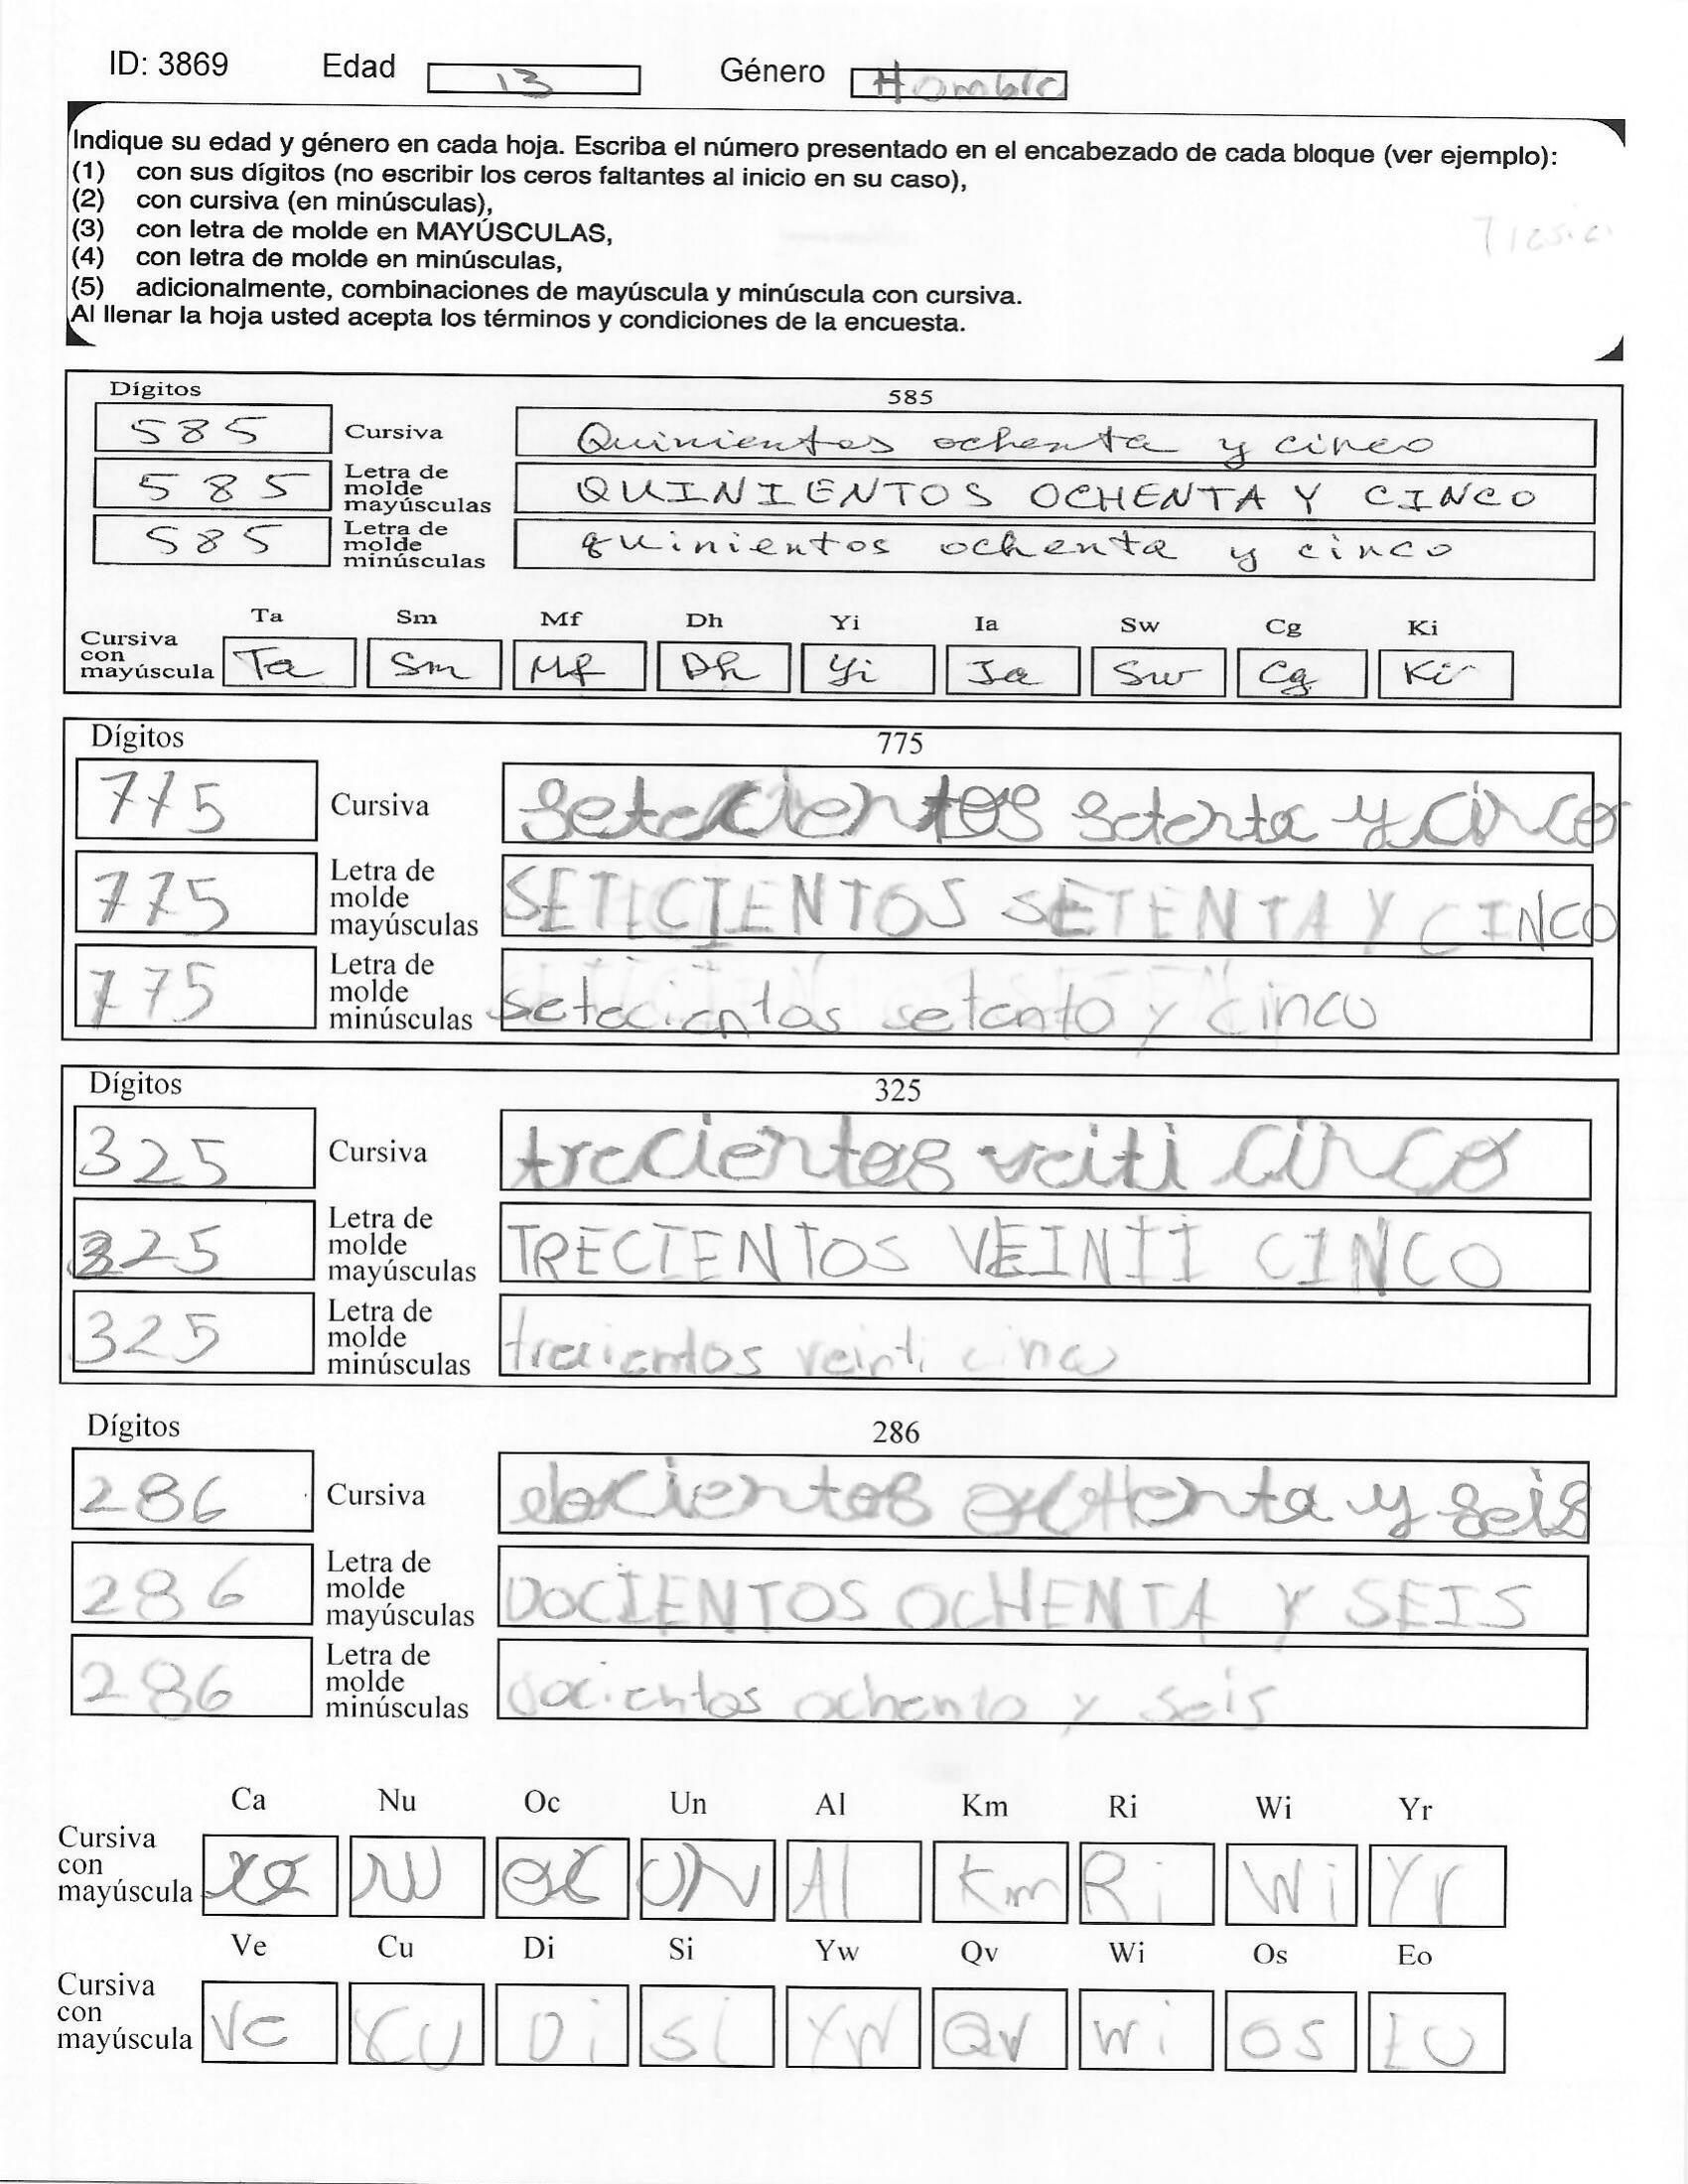 ID: 3869 Edad 13 Género Hombre
Indique su edad y género en cada hoja. Escriba el número presentado en el encabezado de cada bloque (ver ejemplo):
(1) con sus dígitos (no escribir los ceros faltantes al inicio en su caso),
(2) con cursiva (en minúsculas),
(3) con letra de molde en MAYÚSCULAS,
(4) con letra de molde en minúsculas,
(5) adicionalmente, combinaciones de mayúscula y minúscula con cursiva.
Al llenar la hoja usted acepta los términos y condiciones de la encuesta.
Dígitos 585
585 Cursiva Quinientos ochenta y cinco
585 Letra de molde mayúsculas QUINIENTOS OCHENTA Y CINCO
585 Letra de molde minúsculas quinientos ochenta y cinco
Ta Sm Mf Dh Yi Ia Sw Cg Ki
Cursiva con mayúscula Ta Sm Mf Dh Yi Ia Sw Cg Ki
Dígitos 775
775 Cursiva setecientos setenta y cinco
775 Letra de molde mayúsculas SETICIENTOS SETENTA Y CINCO
775 Letra de molde minúsculas setecientos setenta y cinco
Dígitos 325
325 Cursiva trecientos veiti cinco
325 Letra de molde mayúsculas TRECIENTOS VEINTI CINCO
325 Letra de molde minúsculas trecientos veinti cinco
Dígitos 286
286 Cursiva docientos ochenta y seis
286 Letra de molde mayúsculas DOCIENTOS OCHENTA Y SEIS
286 Letra de molde minúsculas docientos ochenta y seis
Ca Nu Oc Un Al Km Ri Wi Yr
Cursiva con mayúscula Ca NU Oc UN Al Km Ri Wi Yr
Ve Cu Di Si Yw Qv Wi Os Eo
Cursiva con mayúscula Ve CU Di Si YW QV Wi OS EO